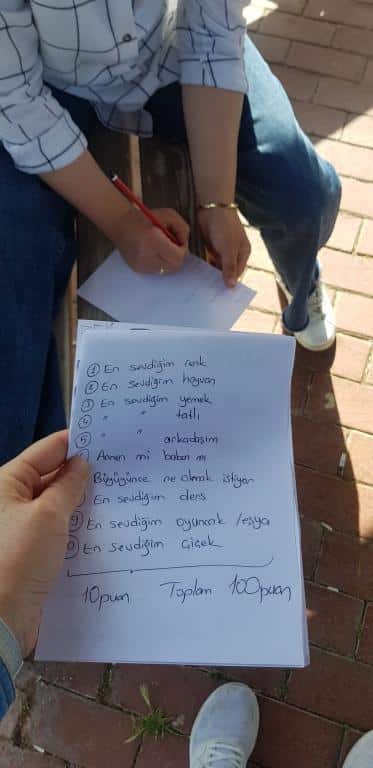 ① En sevdiğim renk
② En sevdiğim hayvan
③ En sevdiğim yemek
④ " " tatlı
⑤ " " arkadaşım
Annen mi baban mı
Büyüyünce ne olmak istiyon
En sevdiğim ders
⑨ En sevdiğim oyuncak /eşya
En sevdiğim çiçek
10puan Toplam 100puan